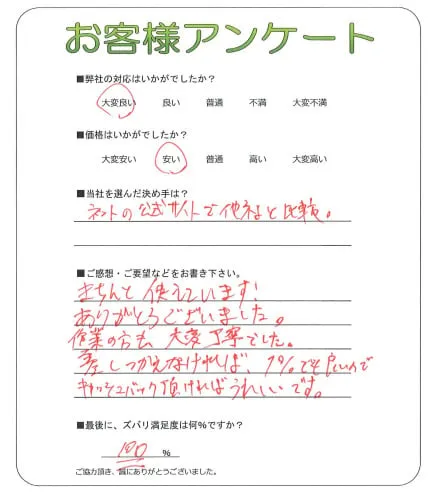 お客様アンケート
■弊社の対応はいかがでしたか?
大変良い 良い 普通 不満 大変不満
■価格はいかがでしたか?
大変安い 安い 普通 高い 大変高い
■当社を選んだ決め手は?
ネットの公式サイトで他社と比較。
■ご感想・ご要望などをお書き下さい。
きちんと使えています!
ありがとうございました。
作業の方も大変丁寧でした。
差しつかえなければ、1%でも良いので
キャッシュバック頂ければうれしいです。
■最後に、ズバリ満足度は何%ですか?
100 %
ご協力頂き、誠にありがとうございました。